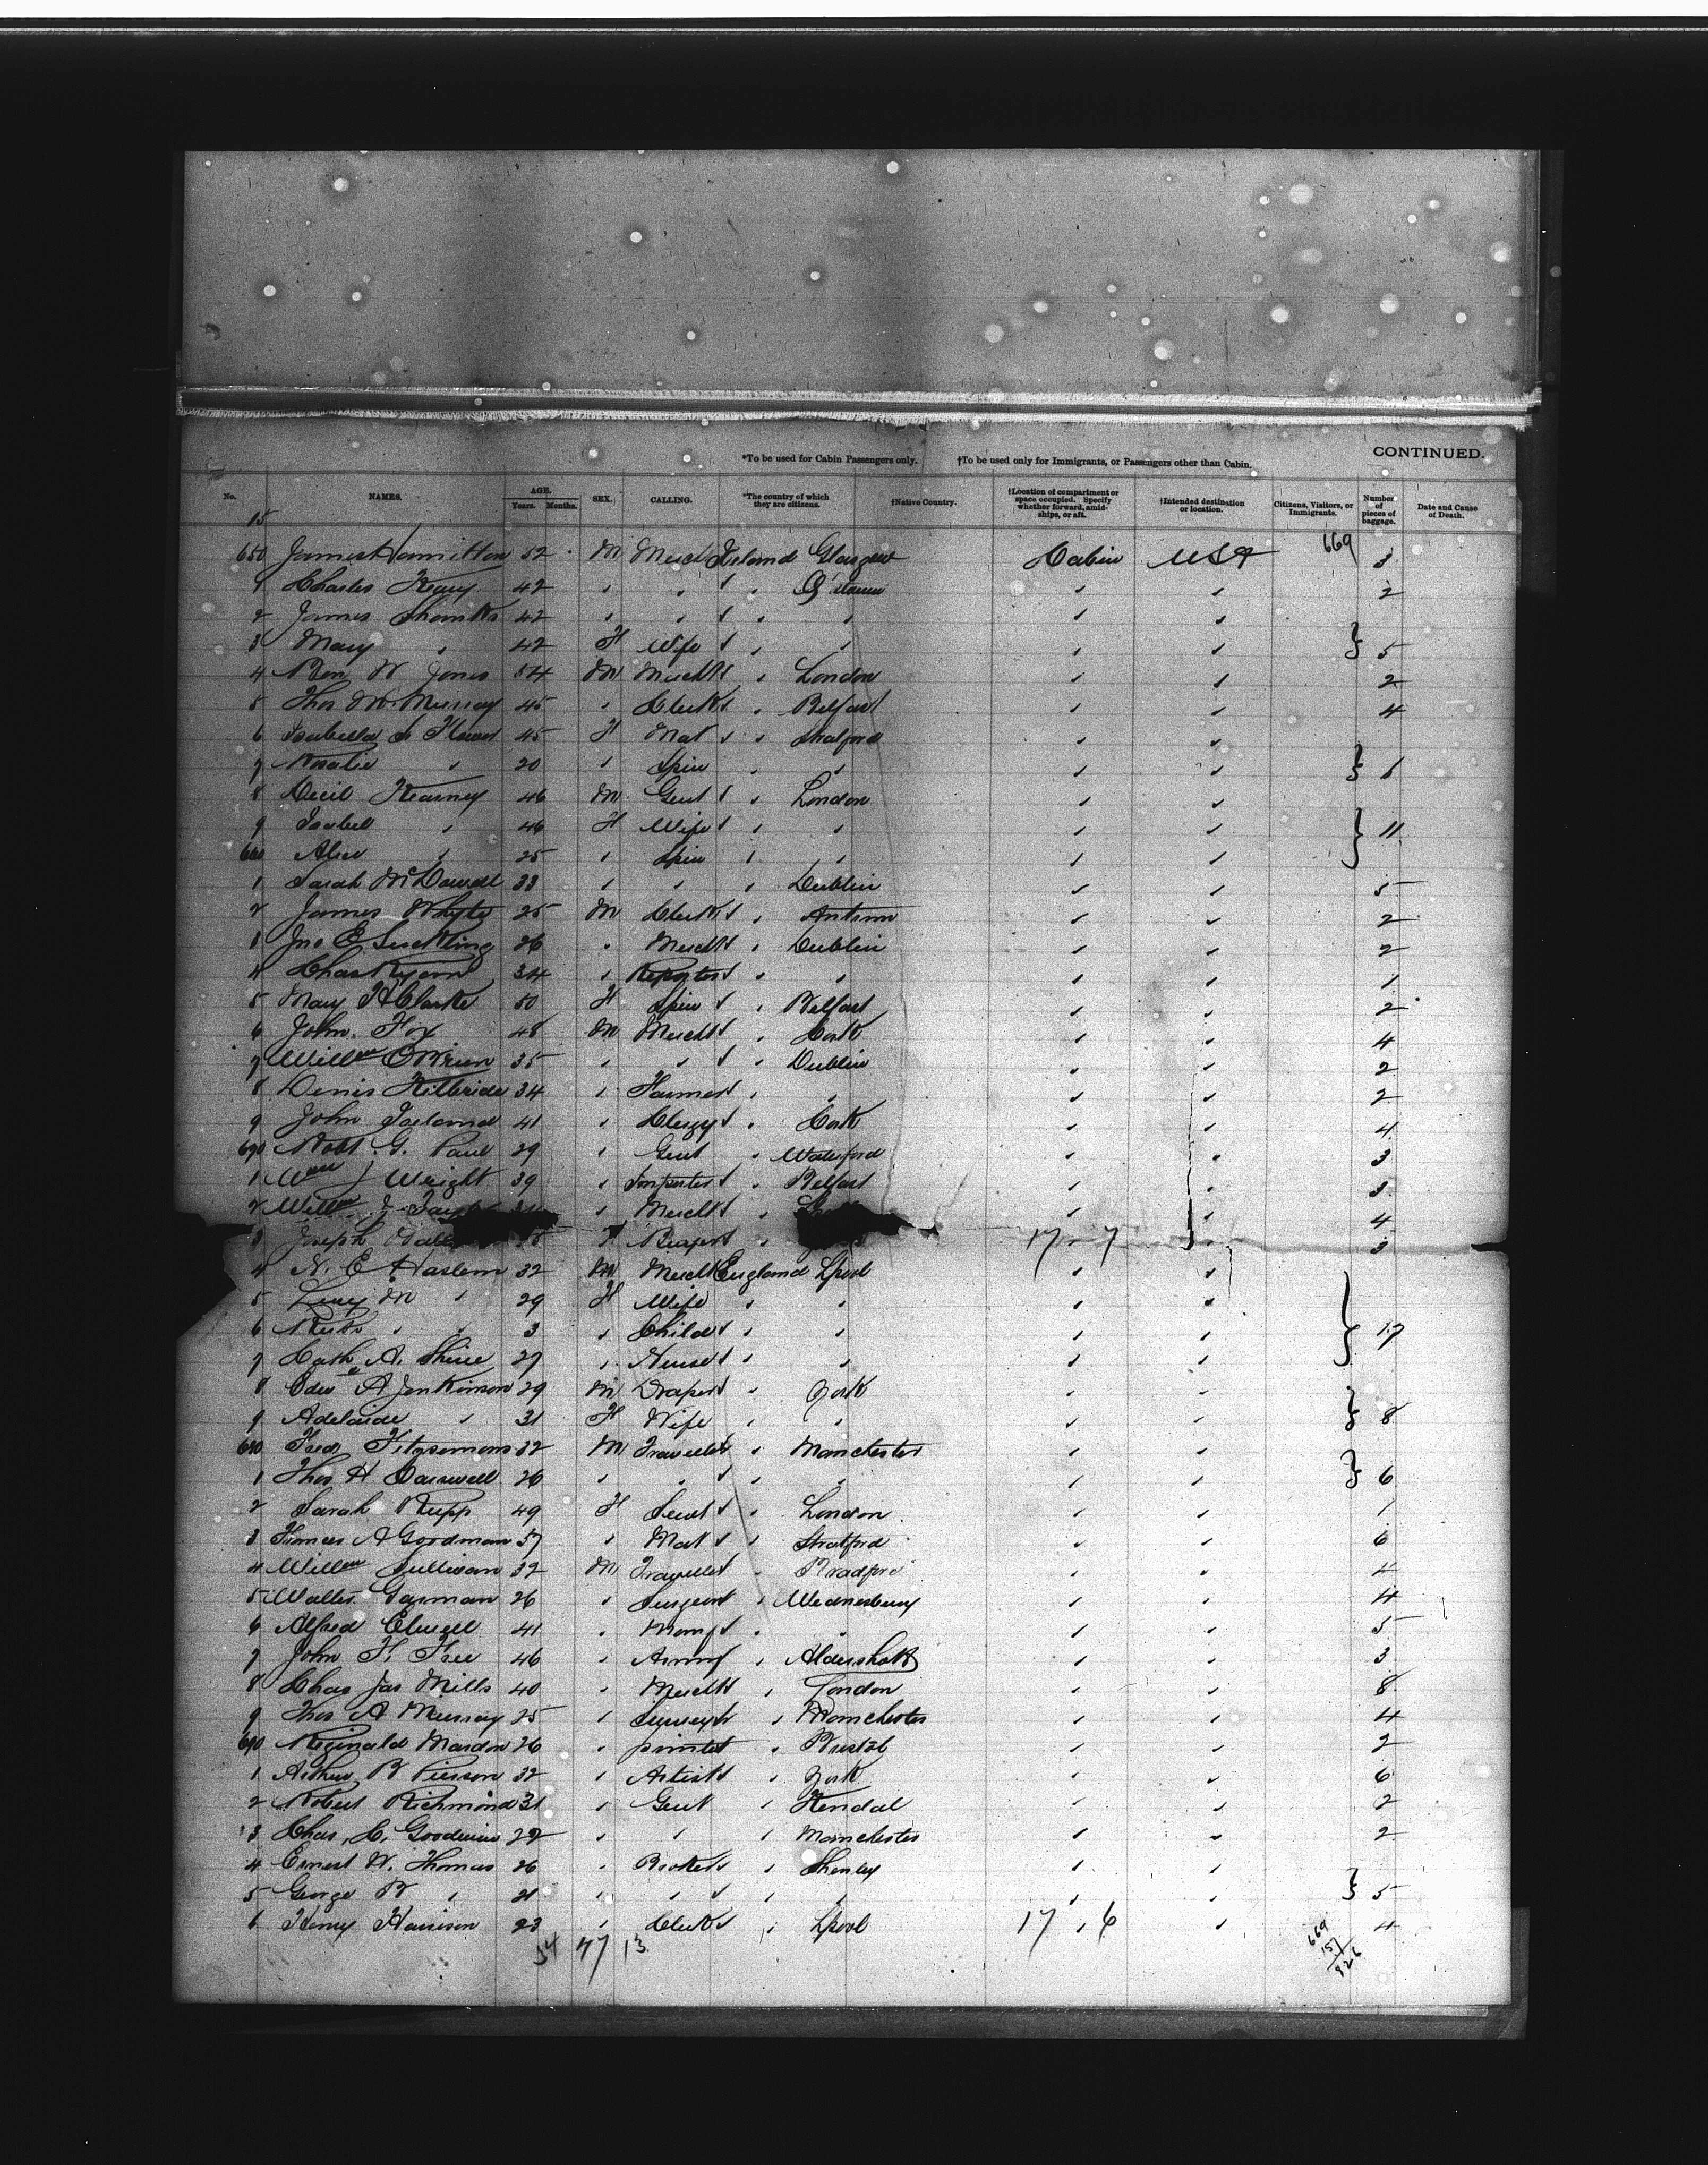 *To be used for Cabin Passengers only. †To be used only for Immigrants, or Passengers other than Cabin. CONTINUED.
No. NAMES. AGE. Years. Months. SEX. CALLING. *The country of which they are citizens. †Native Country. †Location of compartment or space occupied. Specify whether forward, amidships, or aft. †Intended destination or location. Citizens, Visitors, or Immigrants. Number of pieces of baggage. Date and Cause of Death.
15
669
650 James Hamilton 52 M Merch Ireland Glasgow Cabin USA 3
1 Charles 42 " " " " Q'stown " " 2
2 James 42 " " " " " " "
3 Mary " 42 F Wife " " " " " } 5
4 Ben W Jones 54 M Mercht " London " " 2
5 Thos W. Murray 45 " Clerk " Belfast " " 4
6 Isabella 45 F Mat " " Stratford " "
7 " 20 " Spin " " " " } 6
8 Cecil Kearney 46 M Gent " " London " "
9 Isabel " 46 F Wife " " " " "
660 Alice " 25 " Spin " " " " } 11
1 Sarah McDowell 33 " " " Dublin " " 5
2 James Whyte 25 M Clerk " Antrim " " 2
3 Jno E Suckling 26 " Mercht " Dublin " " 2
4 Chas Ryan 34 " Reporter " " " " 1
5 Mary H Clarke 50 F Spin " " Belfast " " 2
6 John Fox 48 M Mercht " Cork " " 4
7 Willm O'Brien 35 " " " " Dublin " " 2
8 Denis Kilbride 34 " Farmer " " " " 2
9 John Ireland 41 " Clergy " " Cork " " 4
670 Robt. G. Paul 29 " Gent " Waterford " " 3
1 Wm J Wright 39 " Importer " Belfast " " 3
2 Willm J " Mercht " " " 4
3 Joseph " 17 . 7 " 3
4 N. E Haslem 32 M Mercht England Lpool " "
5 Lucy M " 29 F Wife " " " "
6 " " 3 " Child " " " " } 17
7 Cath A. 27 " Nurse " " " "
8 Edw A Jenkinson 29 M Draper " York " "
9 Adelaide " 31 F Wife " " " " } 8
680 Fred Fitzsimons 32 M Traveller " Manchester " "
1 Thos H 26 " " " " " " " } 6
2 Sarah Rupp 49 F Servt " London " " 1
3 Frances A Goodman 57 " Mat " " Stratford " " 6
4 Willm Sullivan 32 M Traveller " Bradford " " 4
5 Walter Garman 26 " Surgeon " Wednesbury " " 4
6 Alfred Elwell 41 " Manf " " " " " 5
7 John F. Free 46 " Army " Aldershott " " 3
8 Chas Jas Mills 40 " Mercht " London " " 8
9 Thos A Murray 25 " " Manchester " " 4
690 Reginald Mardon 26 " printer " Bristol " " 2
1 Arthur B Pierson 32 " Artist " York " " 6
2 Robert Richmond 31 " Gent " Kendal " " 2
3 Chas. C. Goodwin 22 " " " Manchester " " 2
4 Ernest W. Thomas 26 " Broker " Shenley " "
5 George R " 21 " " " " " " " } 5
6 Henry Harrison 23 " Clerk " " Lpool 17 . 6 " 4
34 47 13
669
157
926